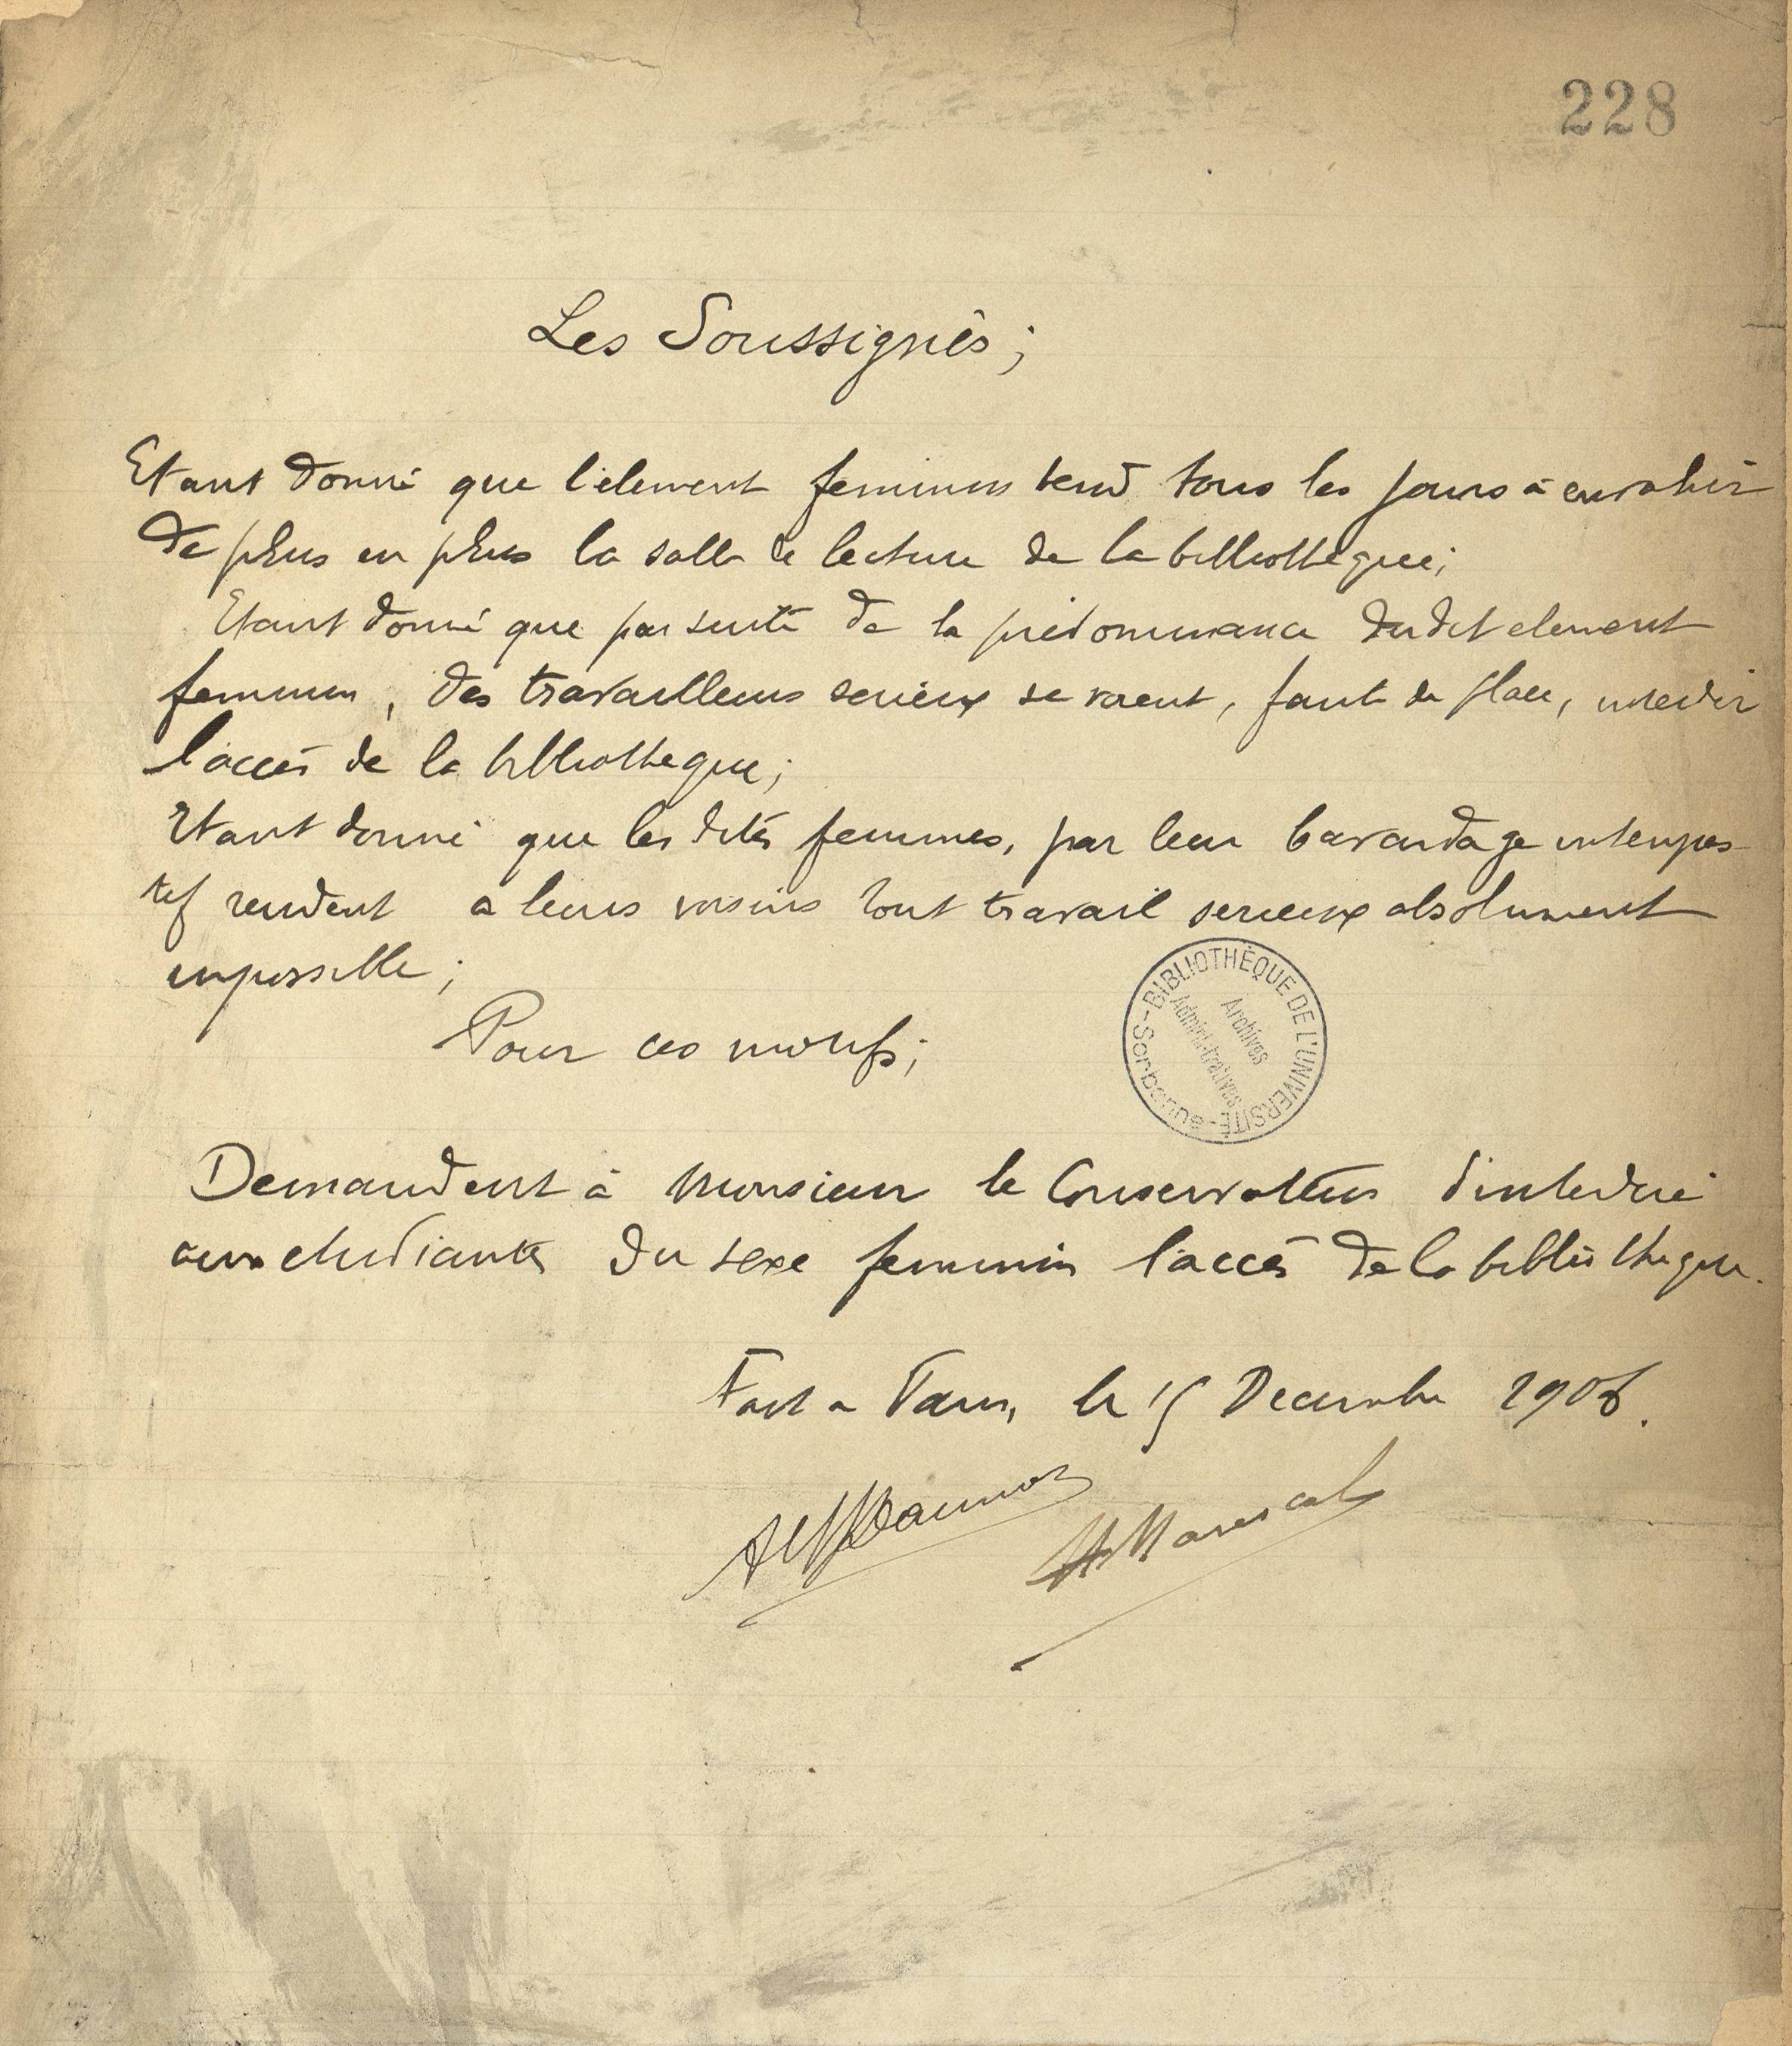 228
Les Soussignés;
Etant donné que l'élement feminin tend tous les jours à envahir
de plus en plus la salle de lecture de la bibliotheque;
Etant donné que par suite de la prédominance dudit element
feminin, des travailleurs serieux se voient, faute de place, interdir
l'accès de la bibliotheque;
Etant donné que les dites femmes, par leur bavardage intempes
tif rendent a leurs voisins tout travail serieux absolument
impossible;
Pour ces motifs;
BIBLIOTHÈQUE DE L'UNIVERSITÉ - Sorbonne -
Archives
Administratives
Demandent à Monsieur le Conservateur d'interdire
aux etudiants du sexe feminin l'accès de la bibliotheque.
Fait a Paris, le 15 Decembre 1906.
A Marescal